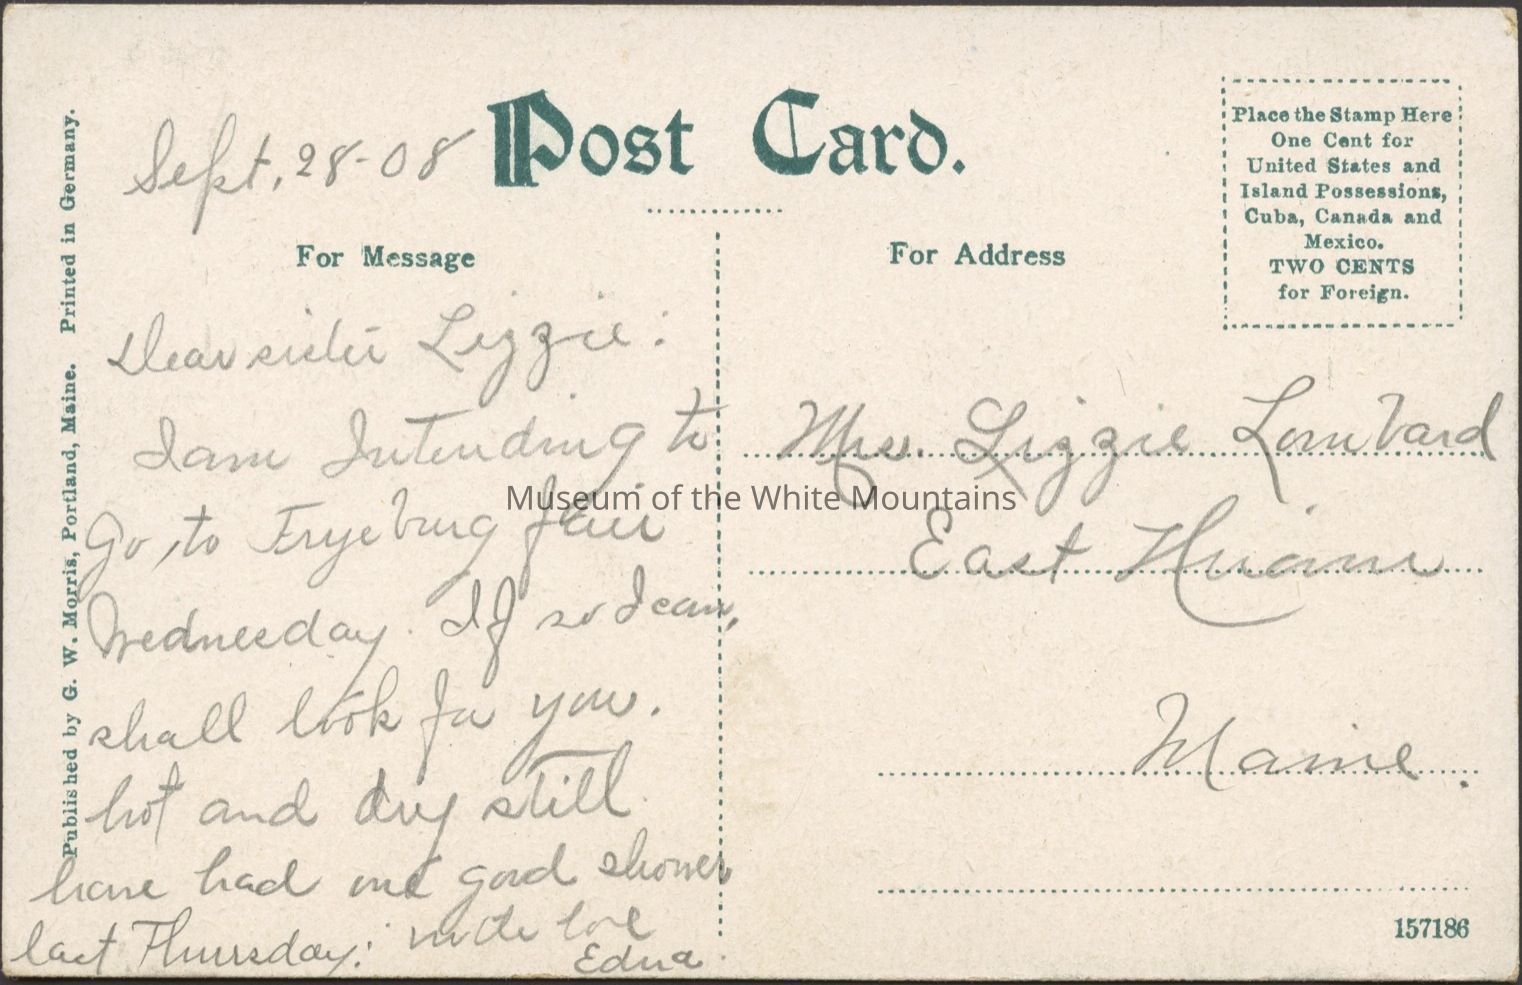 Post Card.
Sept. 28-08
For Message
For Address
Place the Stamp Here
One Cent for
United States and
Island Possessions,
Cuba, Canada and
Mexico.
TWO CENTS
for Foreign.
Published by G. W. Morris, Portland, Maine. Printed in Germany.
Dear sister Lizzie:
I am Intending to
Go, to Fryeburg fair
Wednesday. If so I can,
shall look for you.
hot and dry still
have had one good shower
last Thursday: with love
Edna.
Mrs. Lizzie Lombard
East Hiram
Maine.
157186
Museum of the White Mountains